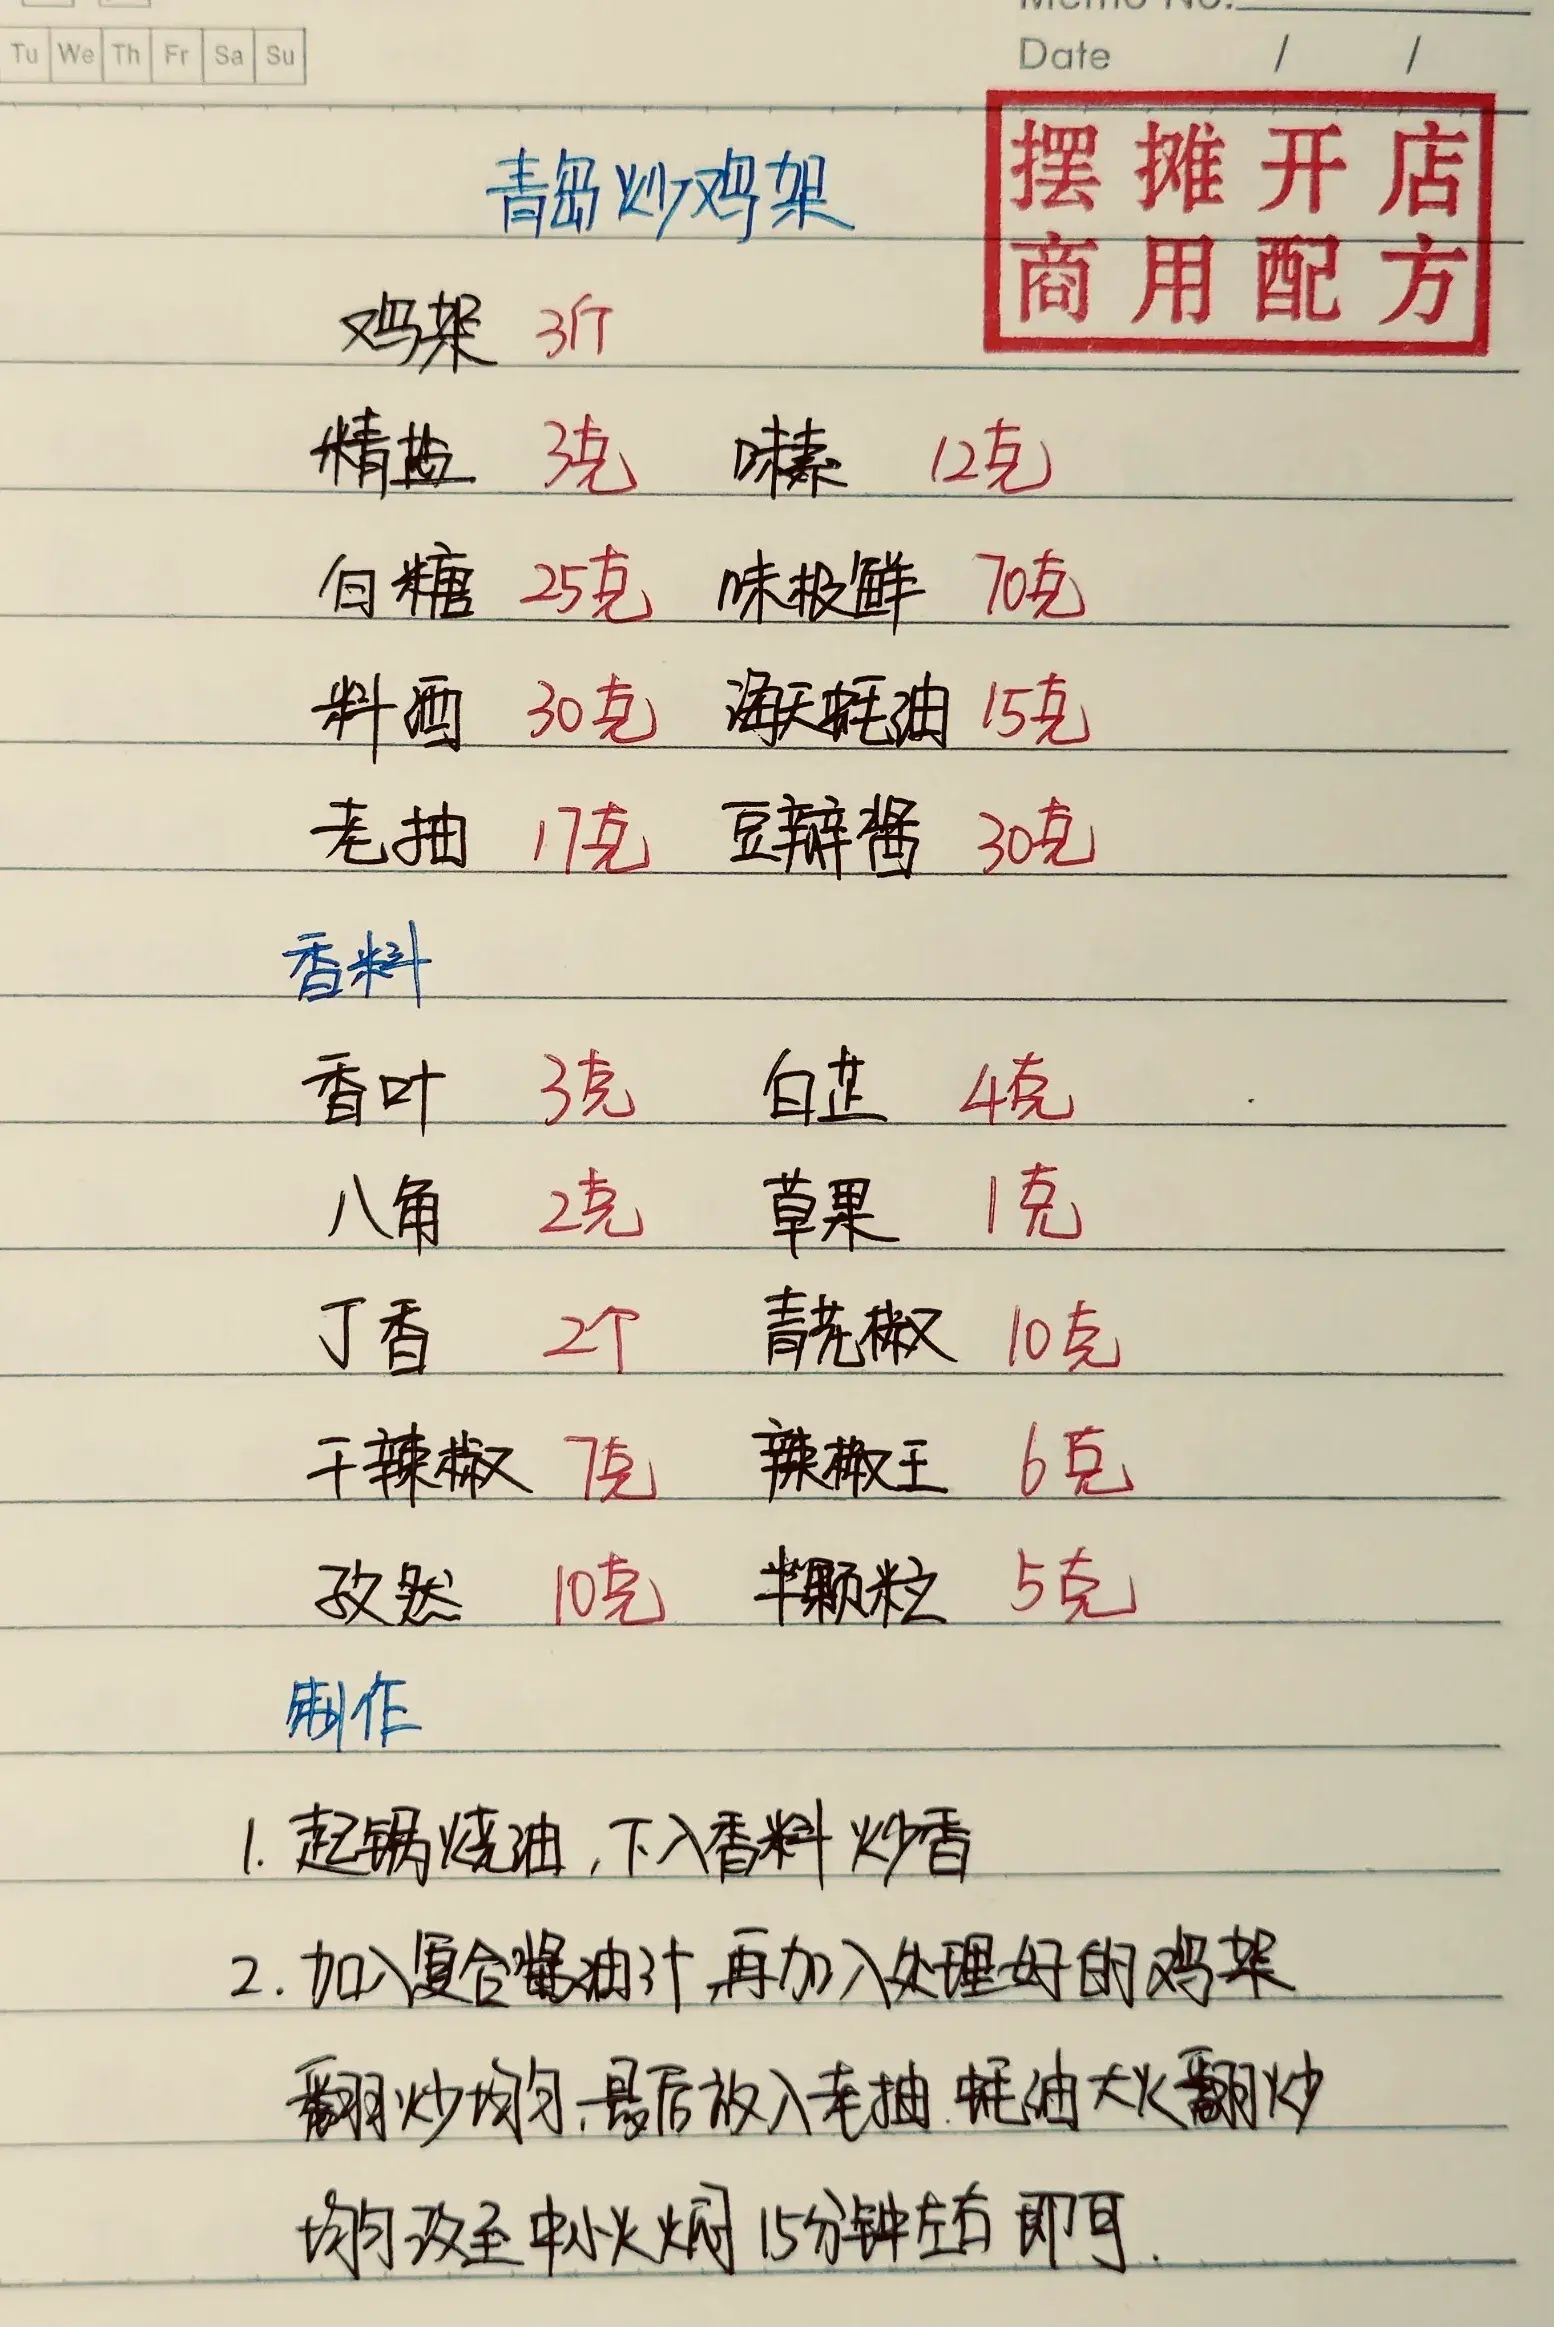 Memo No.
Tu We Th Fr Sa Su
Date / /
摆摊开店
商用配方
青岛炒鸡架
鸡架 3斤
精盐 3克 味素 12克
白糖 25克 味极鲜 70克
料酒 30克 海天蚝油 15克
老抽 17克 豆瓣酱 30克
香料
香叶 3克 白芷 4克
八角 2克 草果 1克
丁香 2个 青花椒 10克
干辣椒 7克 辣椒王 6克
孜然 10克 半颗粒 5克
制作
1. 起锅烧油,下入香料炒香
2. 加入复合酱油汁,再加入处理好的鸡架
翻炒均匀,最后放入老抽.蚝油大火翻炒
均匀改至中小火焖15分钟左右即可.